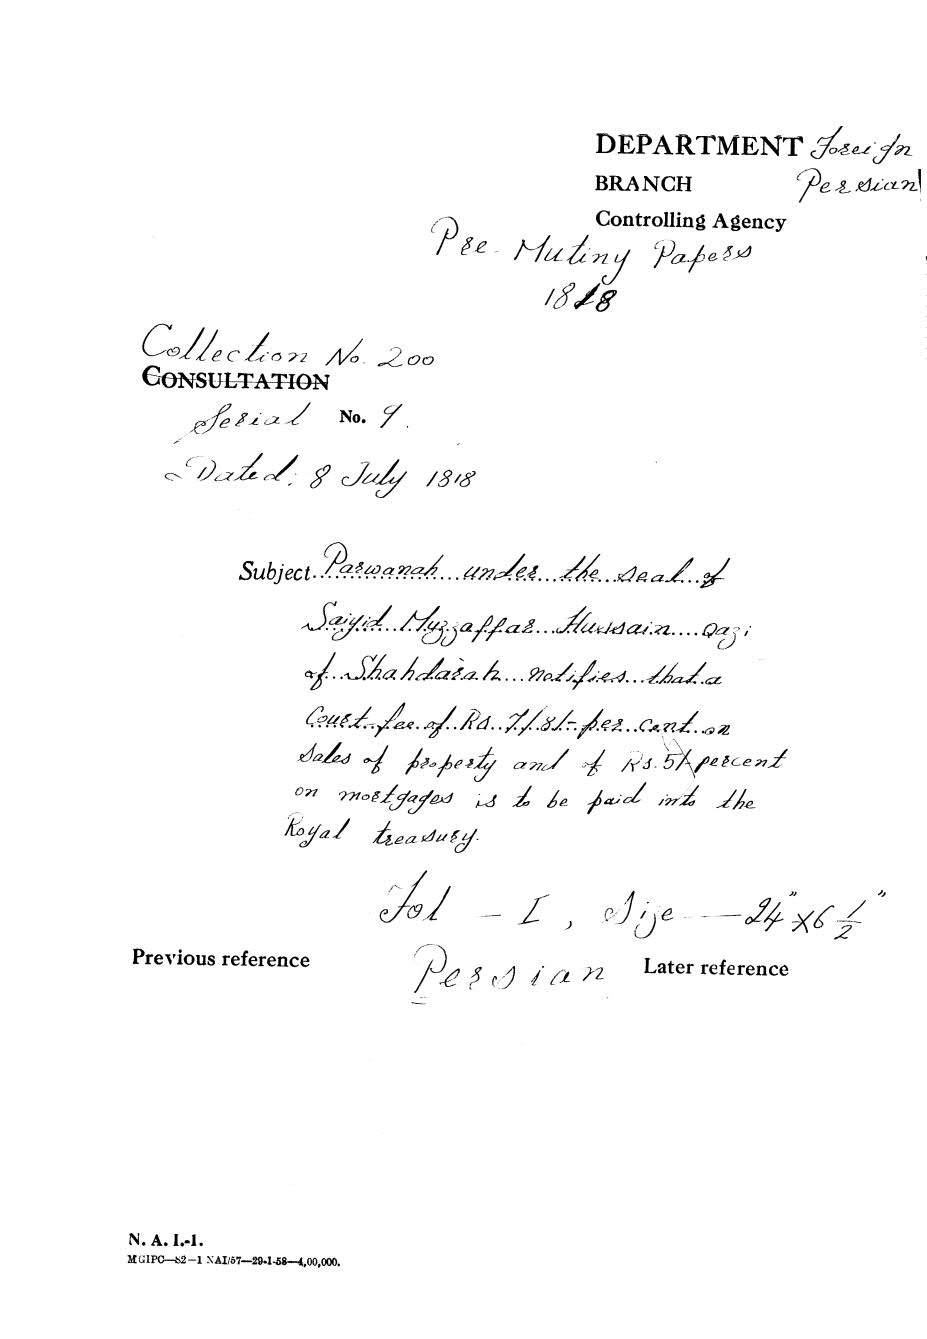 DEPARTMENT Foreign
BRANCH Persian
Controlling Agency
Pre-Mutiny Papers
1818
Collection No. 200
CONSULTATION
Serial No. 9.
Dated: 8 July 1818
Subject Parwanah under the seal of
Saiyid Muzzaffar Hussain Qazi
of Shahdarah notifies that a
Court fee of Rs. 7/8/- per cent on
Sales of property and of Rs. 5/- percent
on mortgages is to be paid into the
Royal treasury.
Fol - I, Size — 24" x 6 1/2"
Previous reference Persian Later reference
N. A. I.-1.
MGIPC—S2—1 NAI/57—29-1-58—4,00,000.